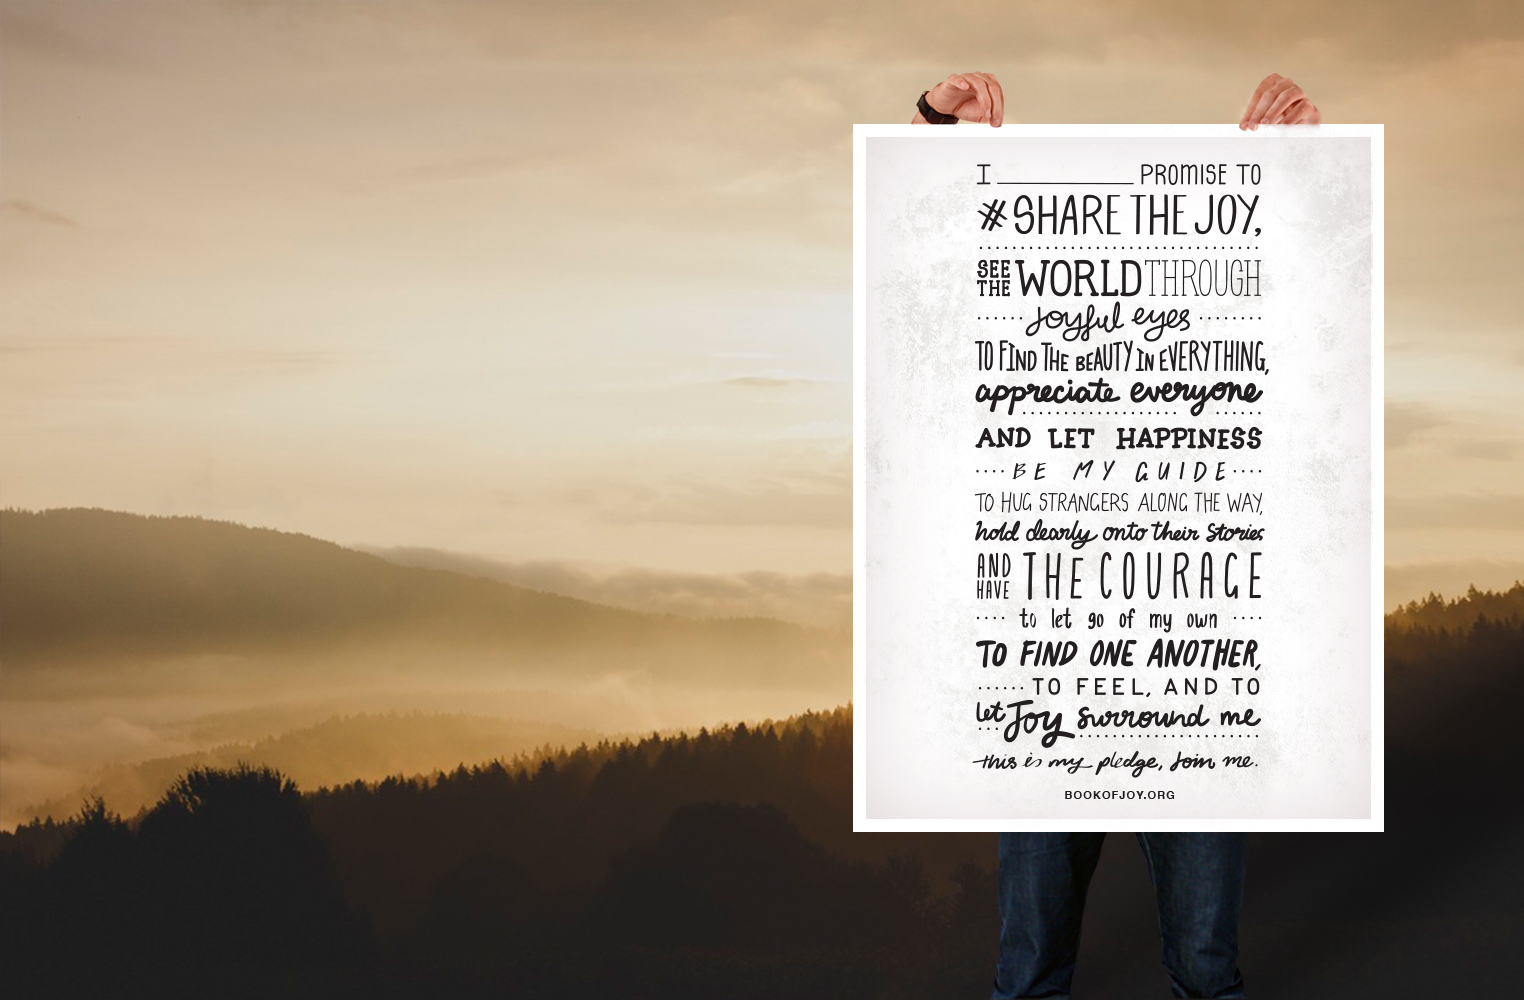 I ____________ PROMISE TO
#SHARE THE JOY,
SEE THE WORLD THROUGH
joyful eyes
TO FIND THE BEAUTY IN EVERYTHING,
appreciate everyone
AND LET HAPPINESS
BE MY GUIDE
TO HUG STRANGERS ALONG THE WAY,
hold dearly onto their stories
AND HAVE THE COURAGE
to let go of my own
TO FIND ONE ANOTHER,
TO FEEL, AND TO
let Joy surround me
this is my pledge, join me.
BOOKOFJOY.ORG